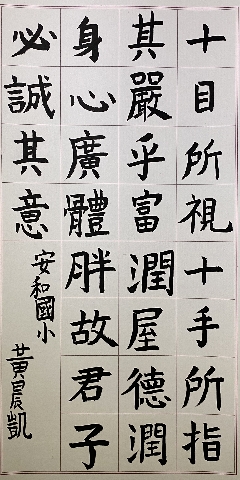 十目所視十手所指
其嚴乎富潤屋德潤
身心廣體胖故君子
必誠其意
安和國小
黃晨凱